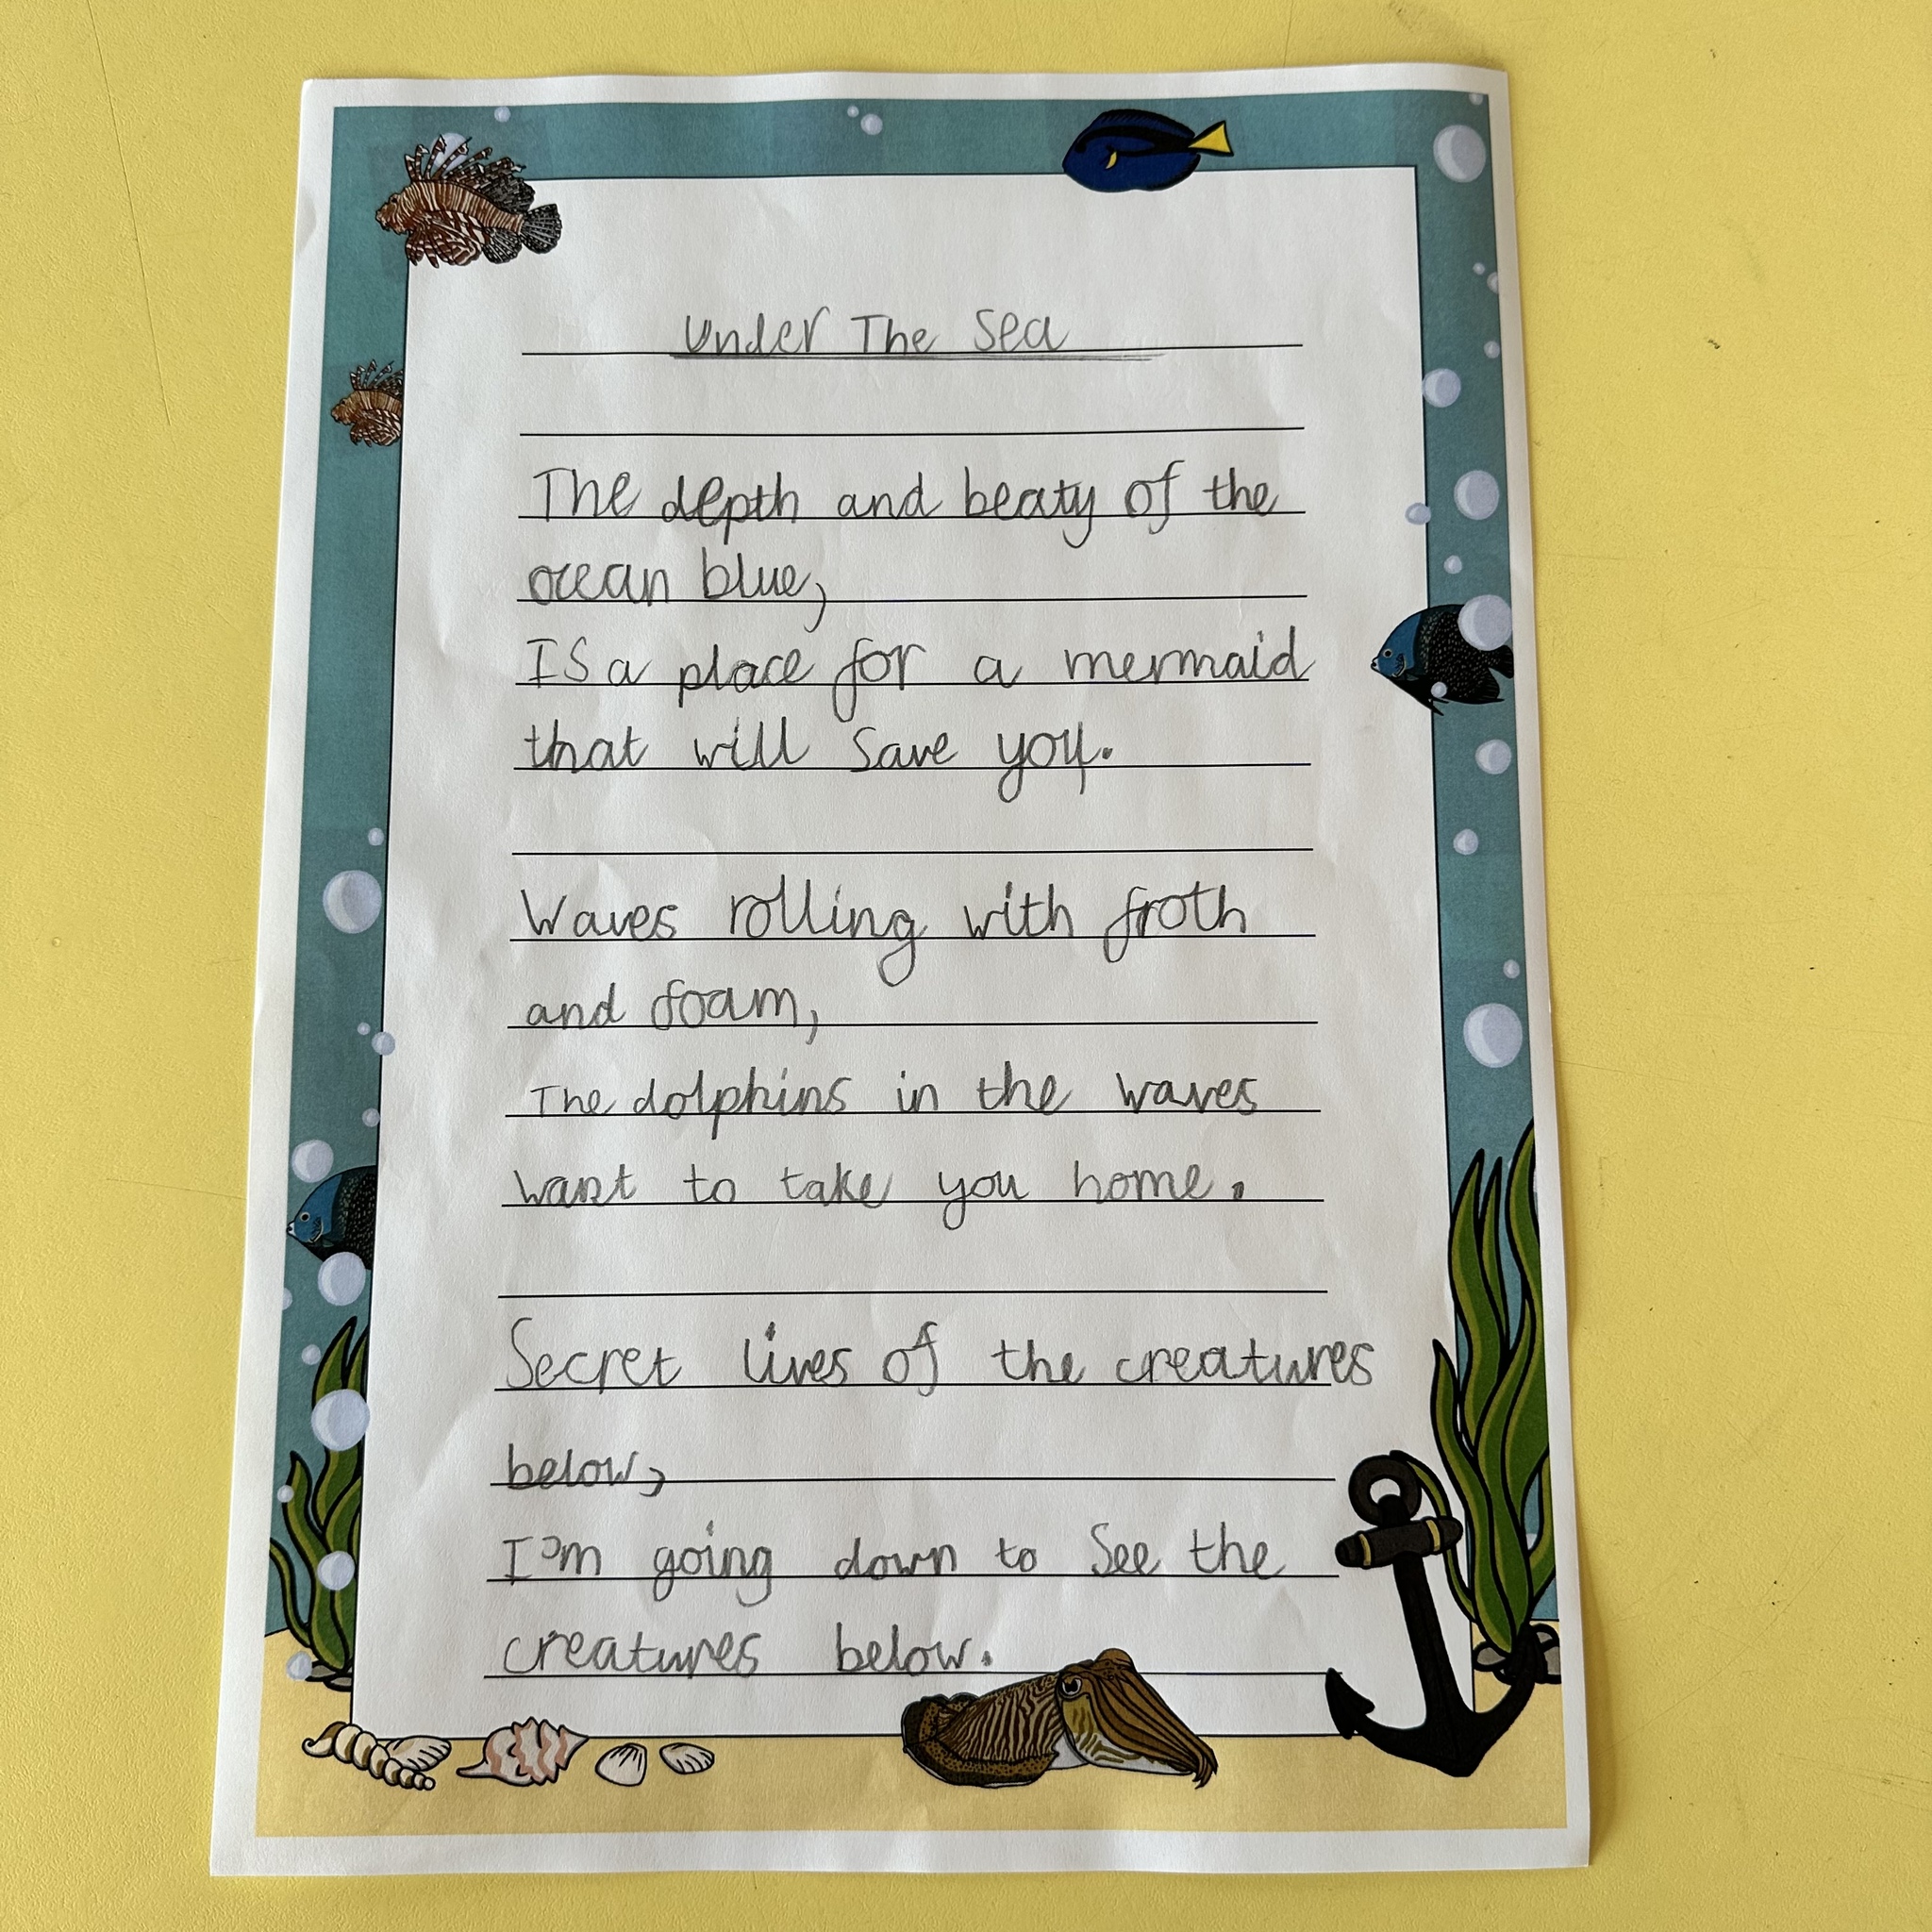 Under The Sea
The depth and beaty of the
ocean blue,
Is a place for a mermaid
that will save you.
Waves rolling with froth
and foam,
The dolphins in the waves
want to take you home.
Secret lives of the creatures
below,
I'm going down to see the
creatures below.